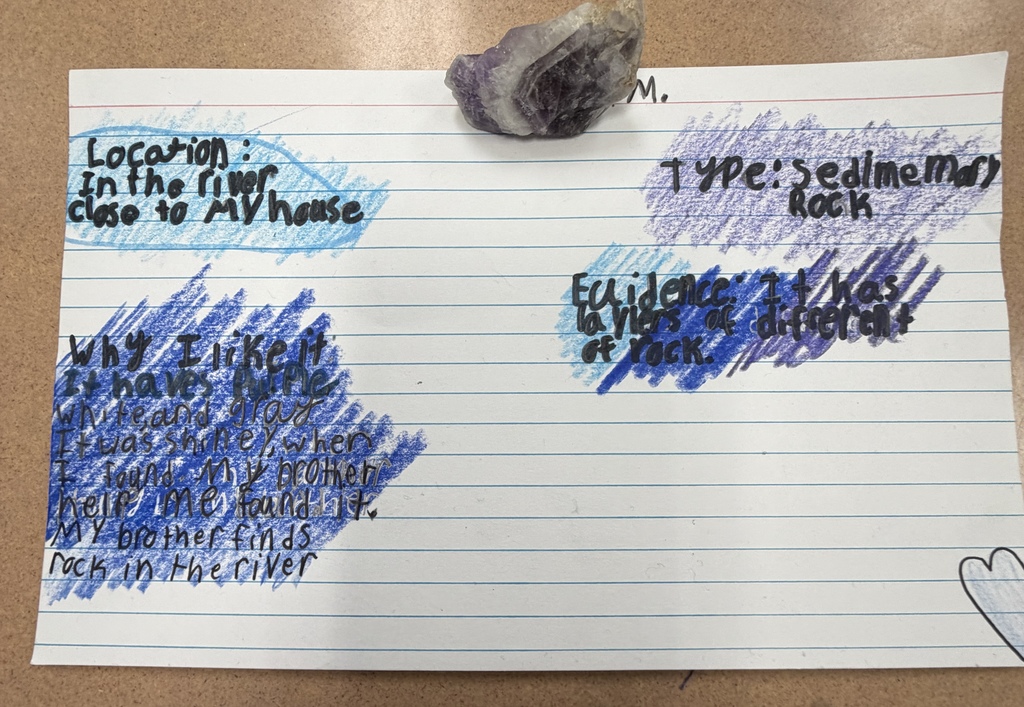 M.
Location:
In the river
close to My house
Type: Sedimemary
Rock
Evidence: It has
layiers of different
of rock.
Why I like it
It haves purple
white, and gray
It was shiney, when
I found My brother
help me found it.
My brother finds
rock in the river